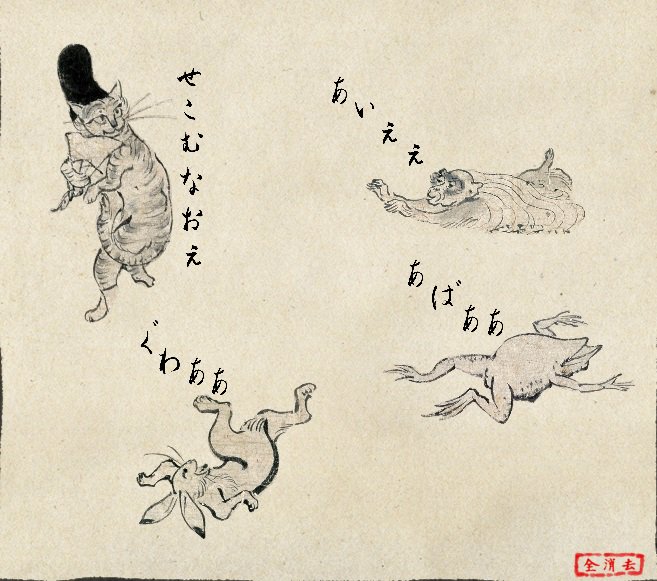 せこむなおえ
あいええ
あばああ
ぐわああ
全消去